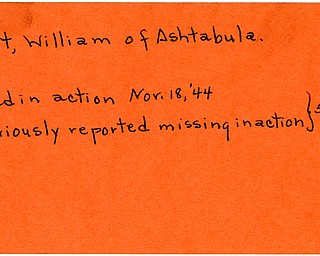 t, William of Ashtabula.
ed in action Nov. 18, '44
riously reported missing in action}